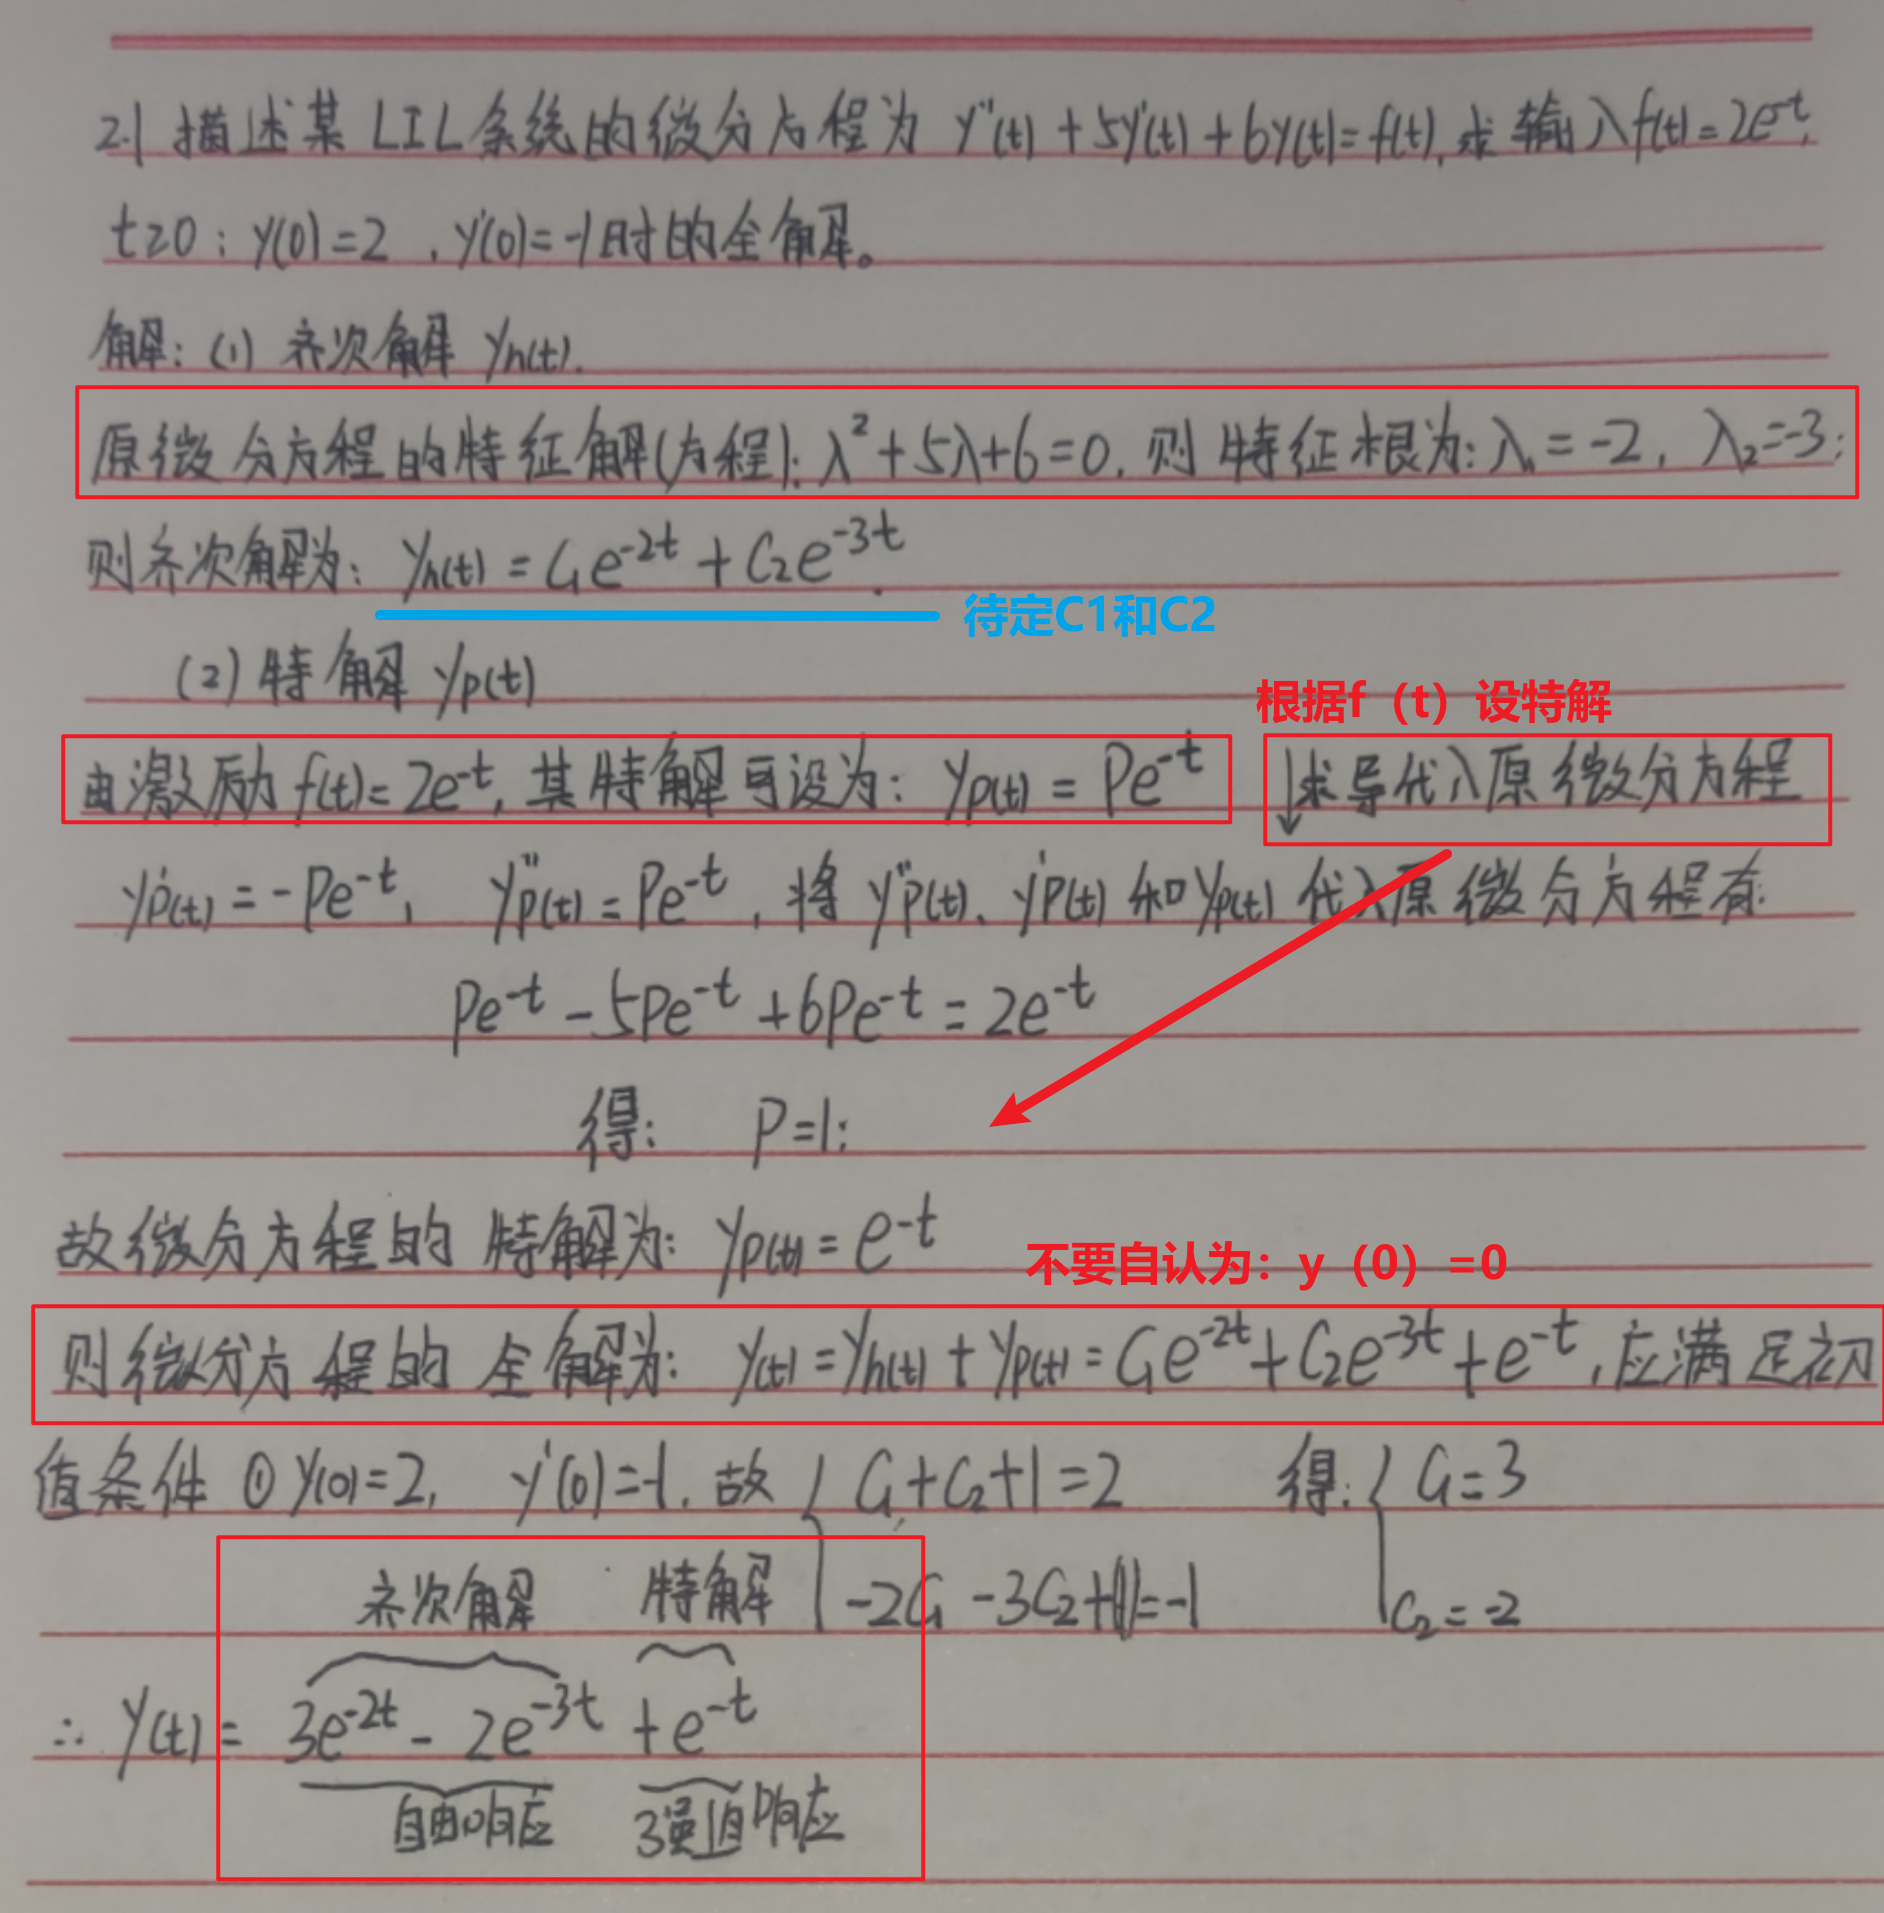 2.1 描述某 LIL系统的微分方程为 y''(t) + 5y'(t) + 6y(t) = f(t), 求输入 f(t) = 2e^-t,
t≥0 ; y(0) = 2 , y'(0) = -1 时的全解。
解: (1) 齐次解 yh(t).
原微分方程的特征解(方程): λ² + 5λ + 6 = 0. 则 特征根为: λ₁ = -2, λ₂ = -3;
则齐次解为: yh(t) = C₁e^-2t + C₂e^-3t.
待定C1和C2
(2) 特解 yp(t)
根据f（t）设特解
由激励 f(t) = 2e^-t, 其特解可设为: yp(t) = Pe^-t ↓求导代入原微分方程
y'p(t) = -Pe^-t, y''p(t) = Pe^-t, 将 y''p(t)、y'p(t) 和 yp(t) 代入原微分方程有:
Pe^-t - 5Pe^-t + 6Pe^-t = 2e^-t
得: P=1;
故微分方程的 特解为: yp(t) = e^-t
不要自认为：y（0）=0
则微分方程的 全解为: y(t) = yh(t) + yp(t) = C₁e^-2t + C₂e^-3t + e^-t, 应满足初
值条件 ① y(0)=2, y'(0)=-1. 故 { C₁+C₂+1=2 得: { C₁=3
齐次解 特解 -2C₁ -3C₂+ =-1 C₂=-2
∴ y(t) = 3e^-2t - 2e^-3t + e^-t
自由响应 强迫响应